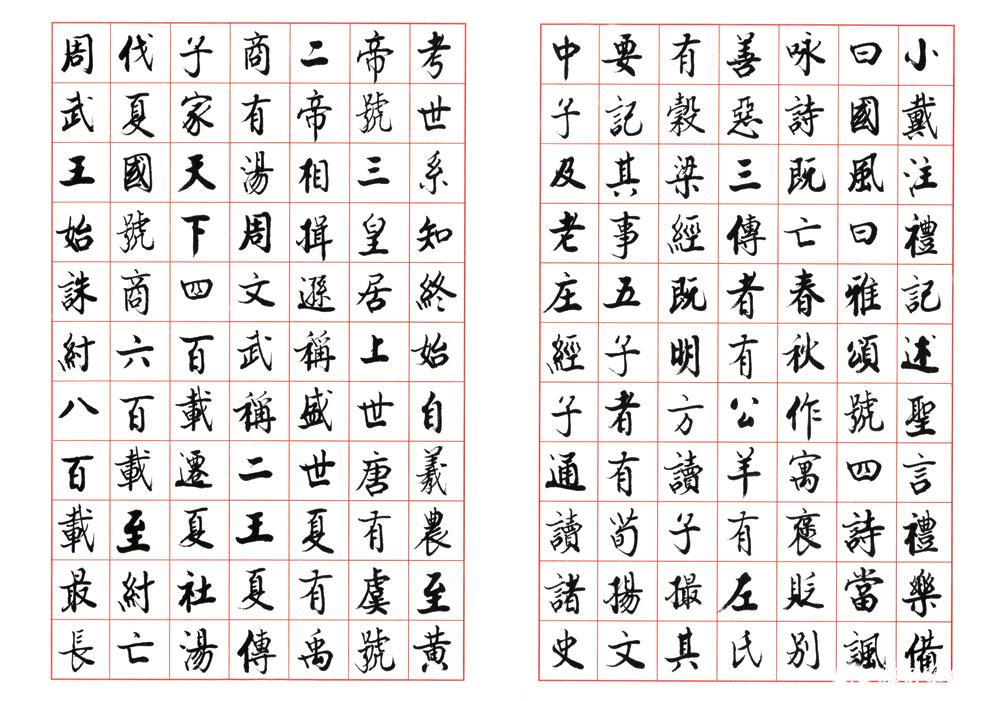 小戴注禮記述聖言禮樂備
曰國風曰雅頌號四詩當諷
咏詩既亡春秋作寓褒貶別
善惡三傳者有公羊有左氏
有穀梁經既明方讀子撮其
要記其事五子者有荀揚文
中子及老庄經子通讀諸史
考世系知終始自羲農至黃
帝號三皇居上世唐有虞號
二帝相揖遜稱盛世夏有禹
商有湯周文武稱二王夏傳
子家天下四百載遷夏社湯
伐夏國號商六百載至紂亡
周武王始誅紂八百載最長